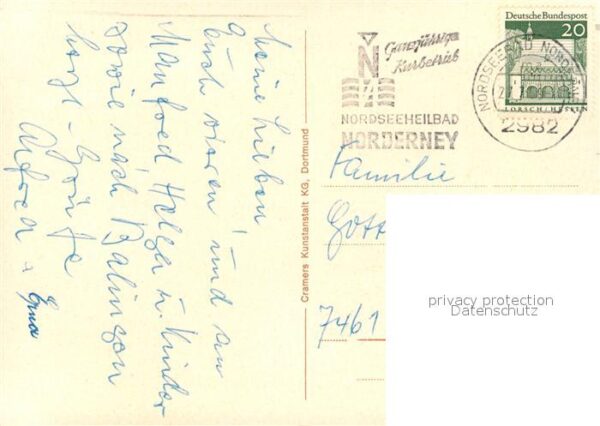 Meine Lieben
Euch dreien und an
Manfred Helga u. Kinder
sowie nach Balingen
herzl. Grüße
Alfred u
Erna
Cramers Kunstanstalt KG, Dortmund
Ganzjähriger
Kurbetrieb
N
NORDSEEHEILBAD
NORDERNEY
NORDSEEBAD
2982
Deutsche Bundespost
20
LORSCH/HESSEN
Familie
Gott
7461
privacy protection
Datenschutz